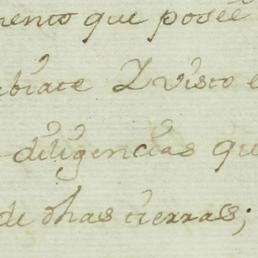 mento que posee
Visto
diligencias qu
de dhas tierras;